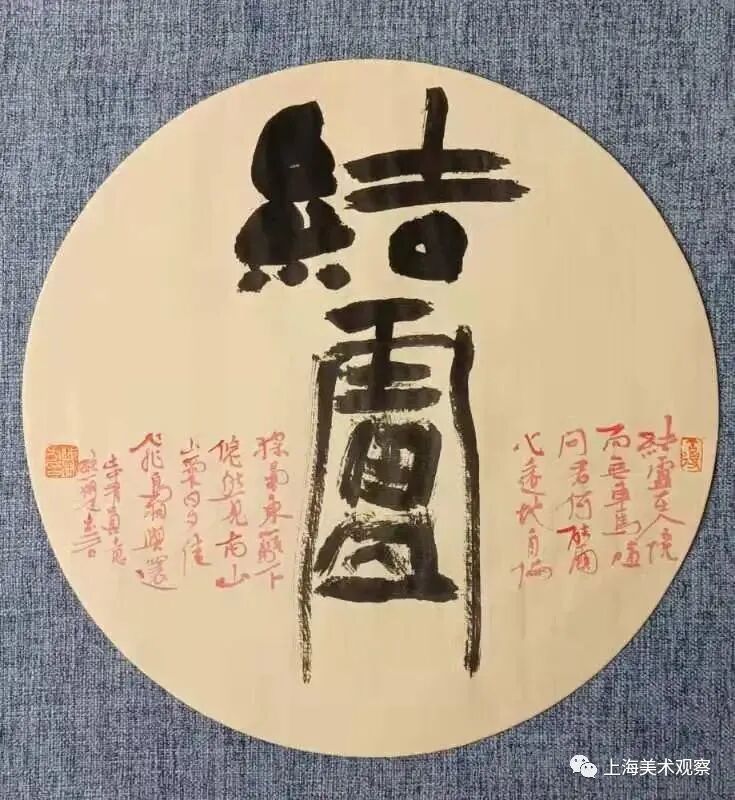 結廬
結廬在人境
而無車馬喧
问君何能爾
心遠地自偏
採菊東籬下
悠然見南山
山氣日夕佳
飛鳥相與還
有真意
上海美术观察